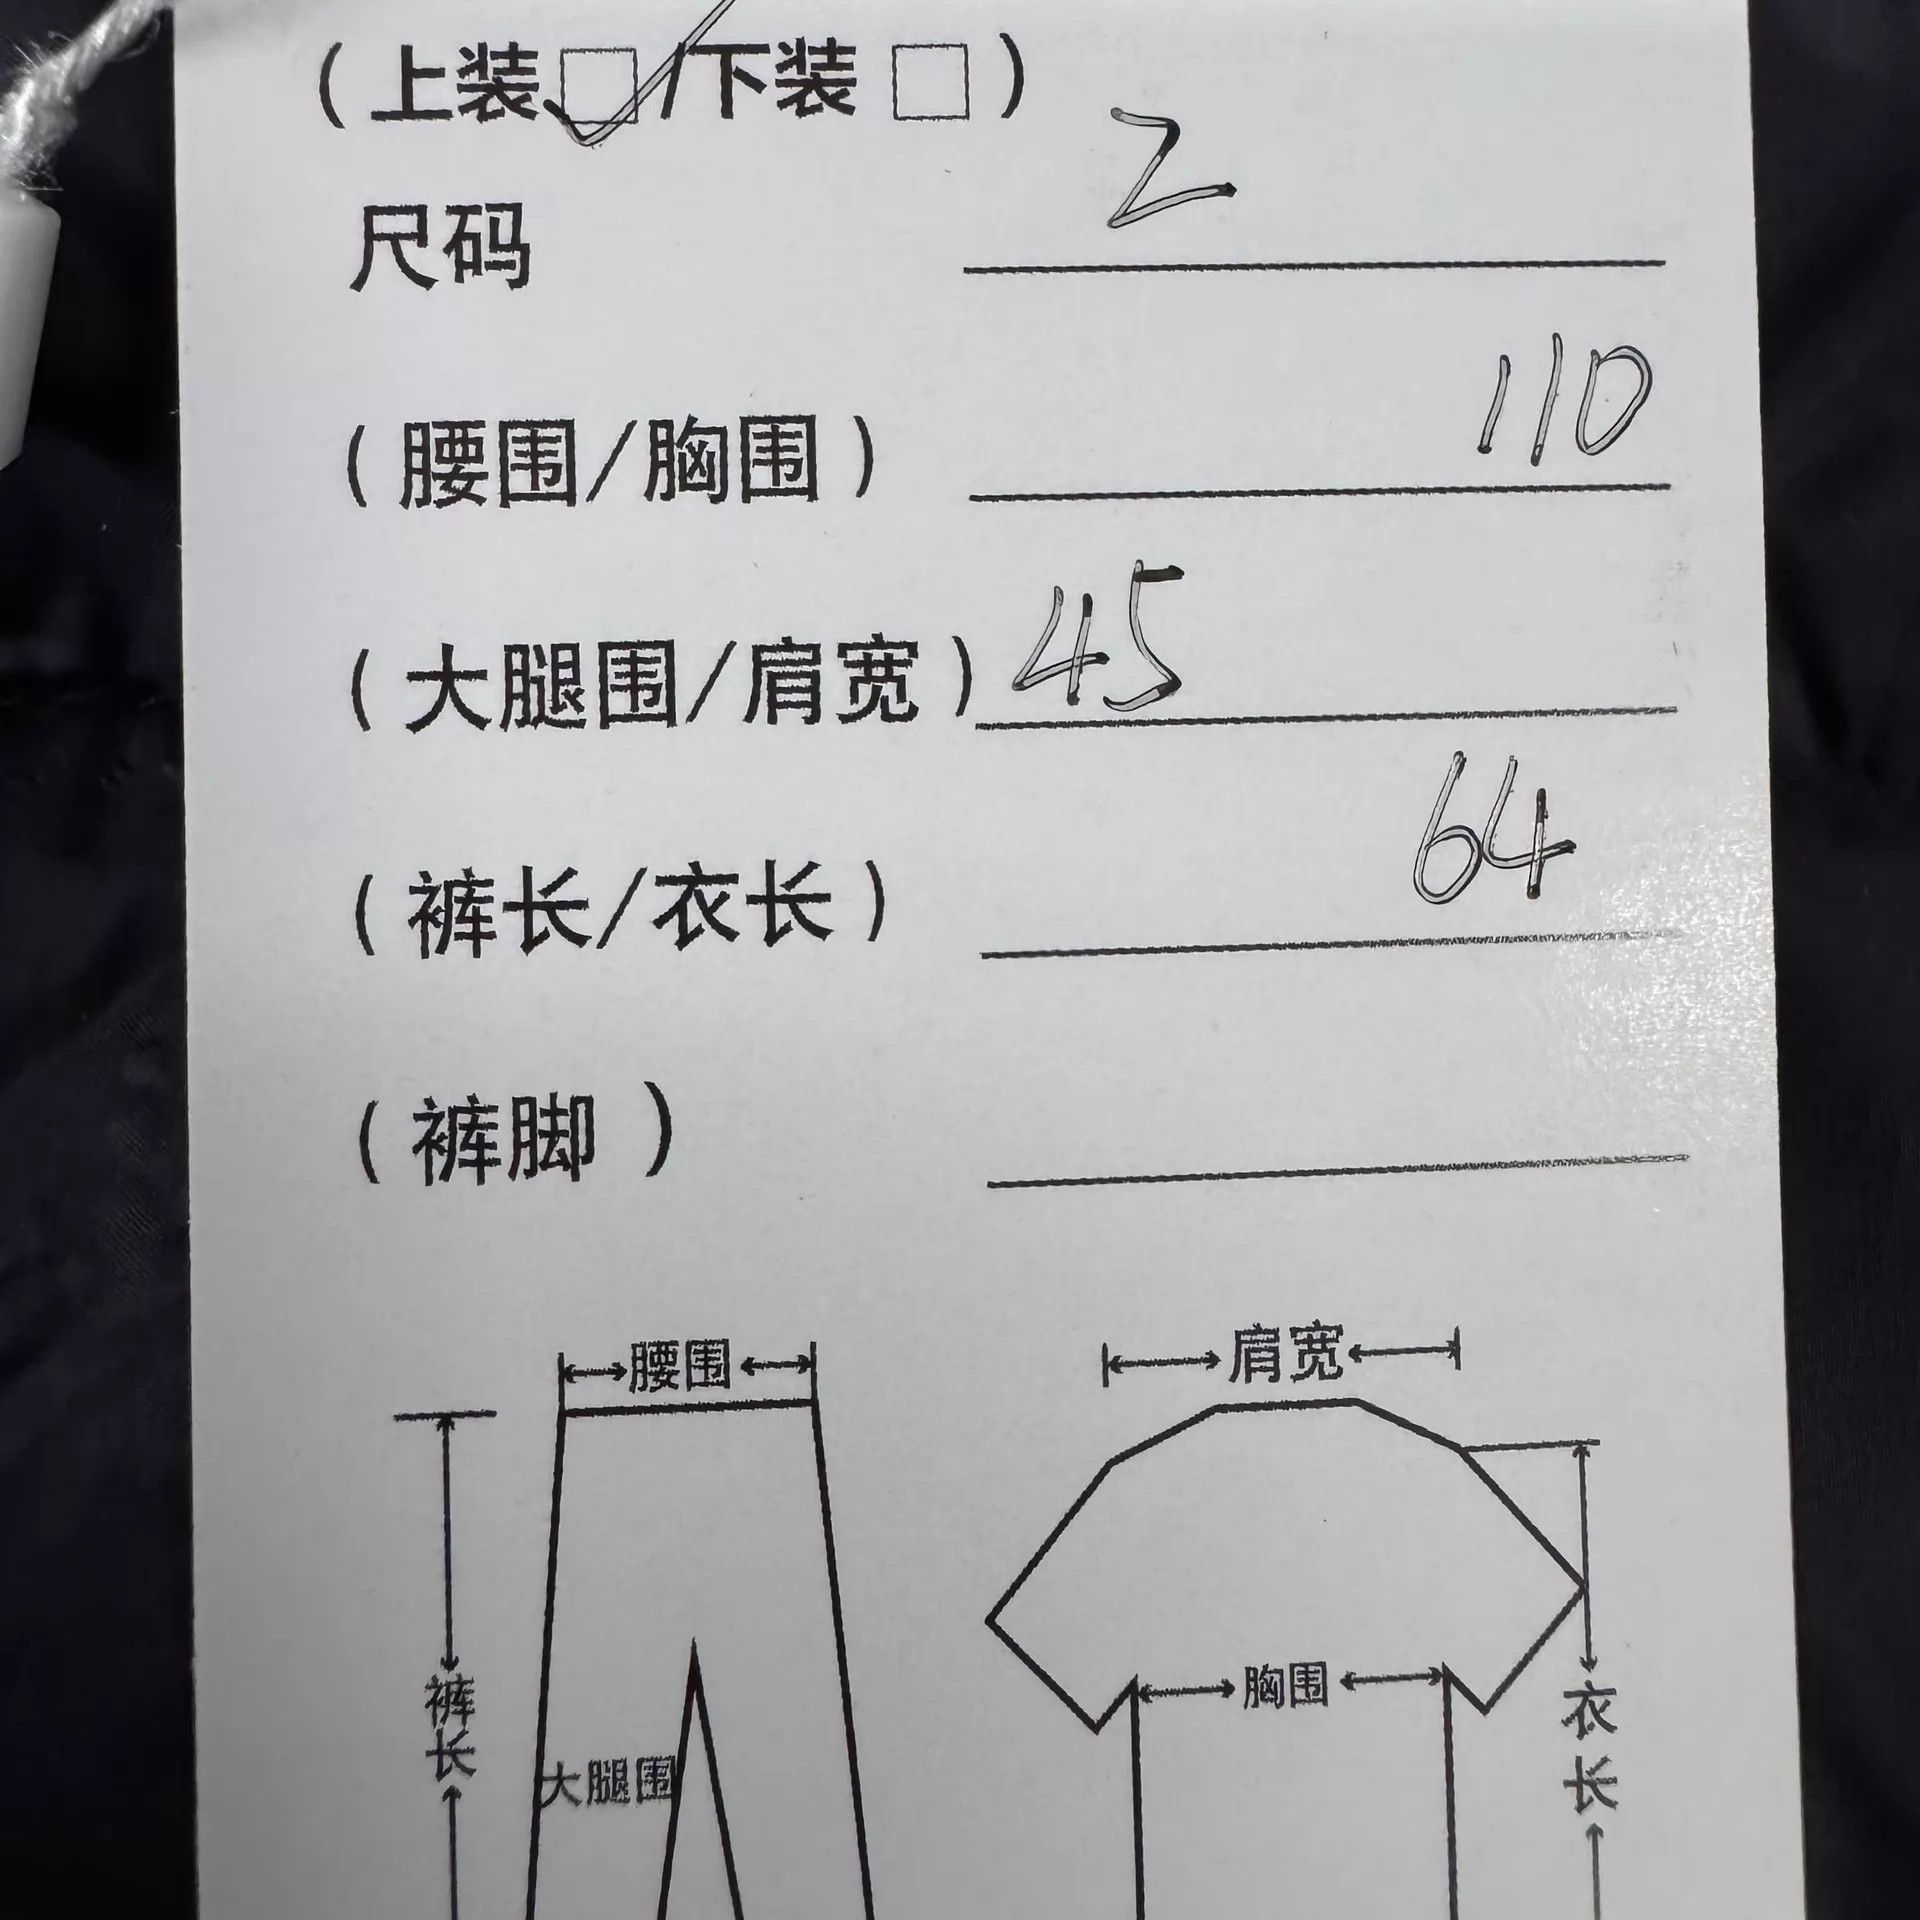 （上装□✓/下装□）
尺码 2
（腰围/胸围） 110
（大腿围/肩宽） 45
（裤长/衣长） 64
（裤脚 ）
腰围
肩宽
裤长
大腿围
胸围
衣长